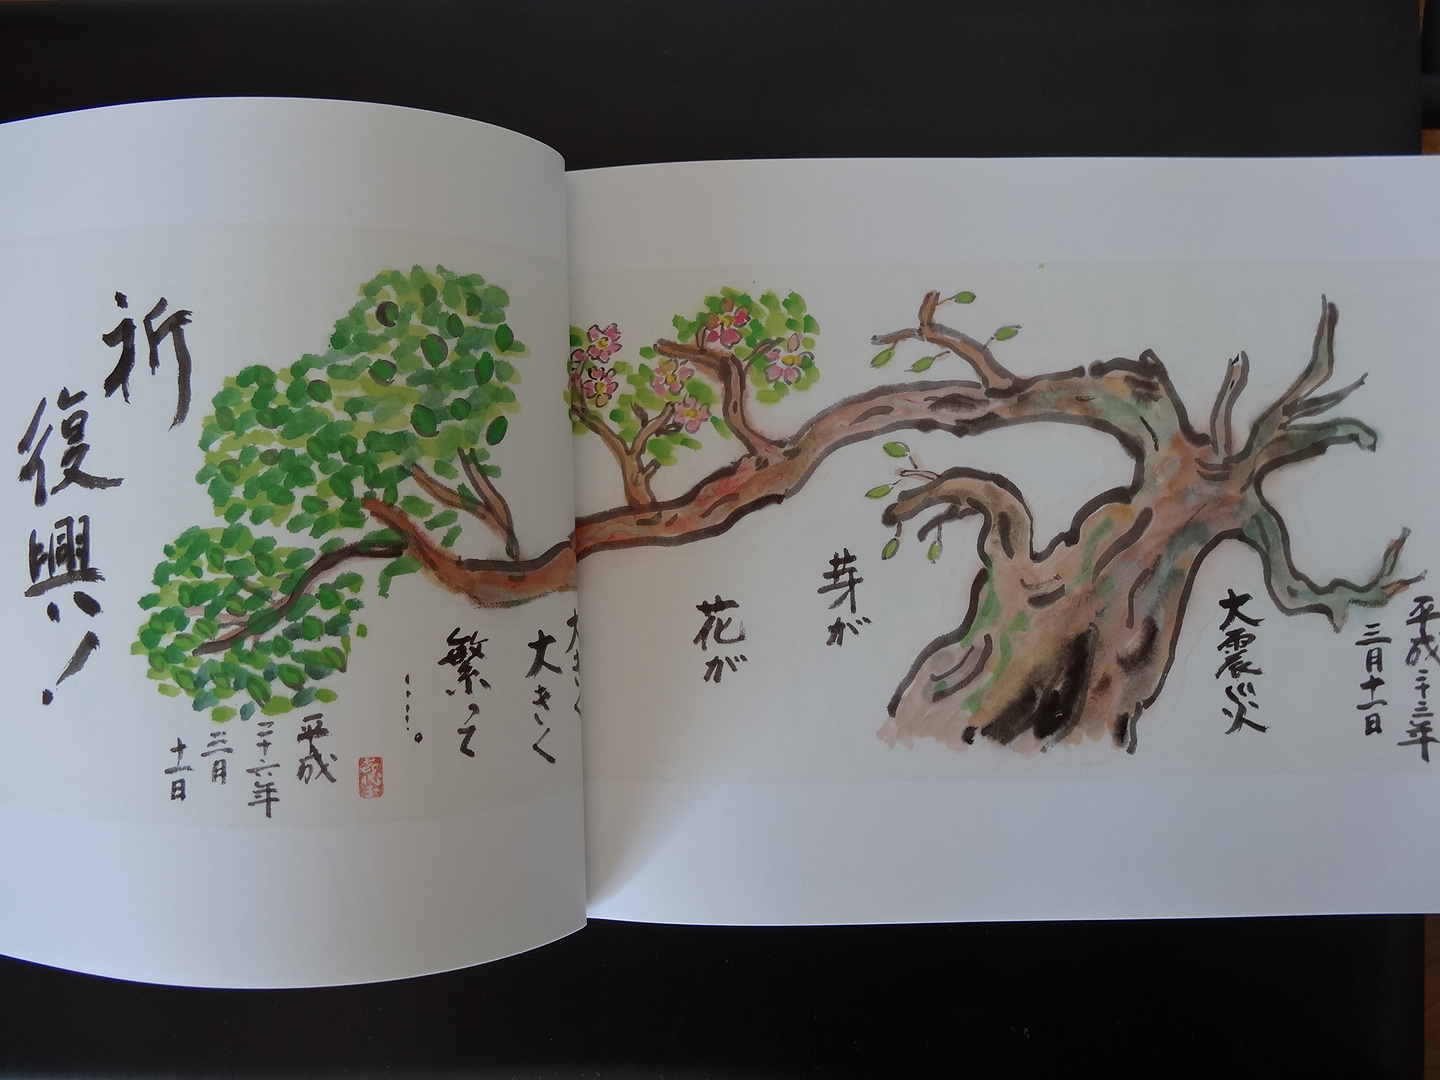 平成二十三年
三月十一日
大震災
芽が
花が
大きく
大きく
繁って
……。
平成
二十六年
三月
十一日
祈
復興!